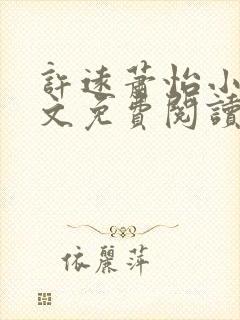 許遠蕭怡小
文免費閱讀
依麗萍